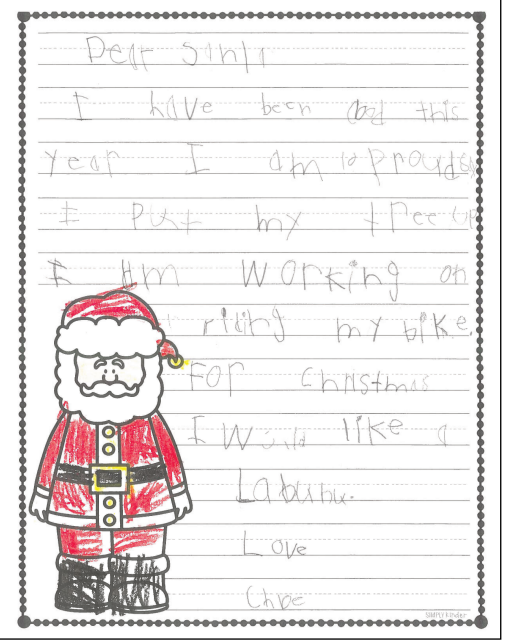 Dear Santa
I have been good this
year I am so proud
I Put my tree up
I Am Working on
riding my bike.
For Christmas
I Would like a
Labubu.
Love
Chloe
Simply Kinder